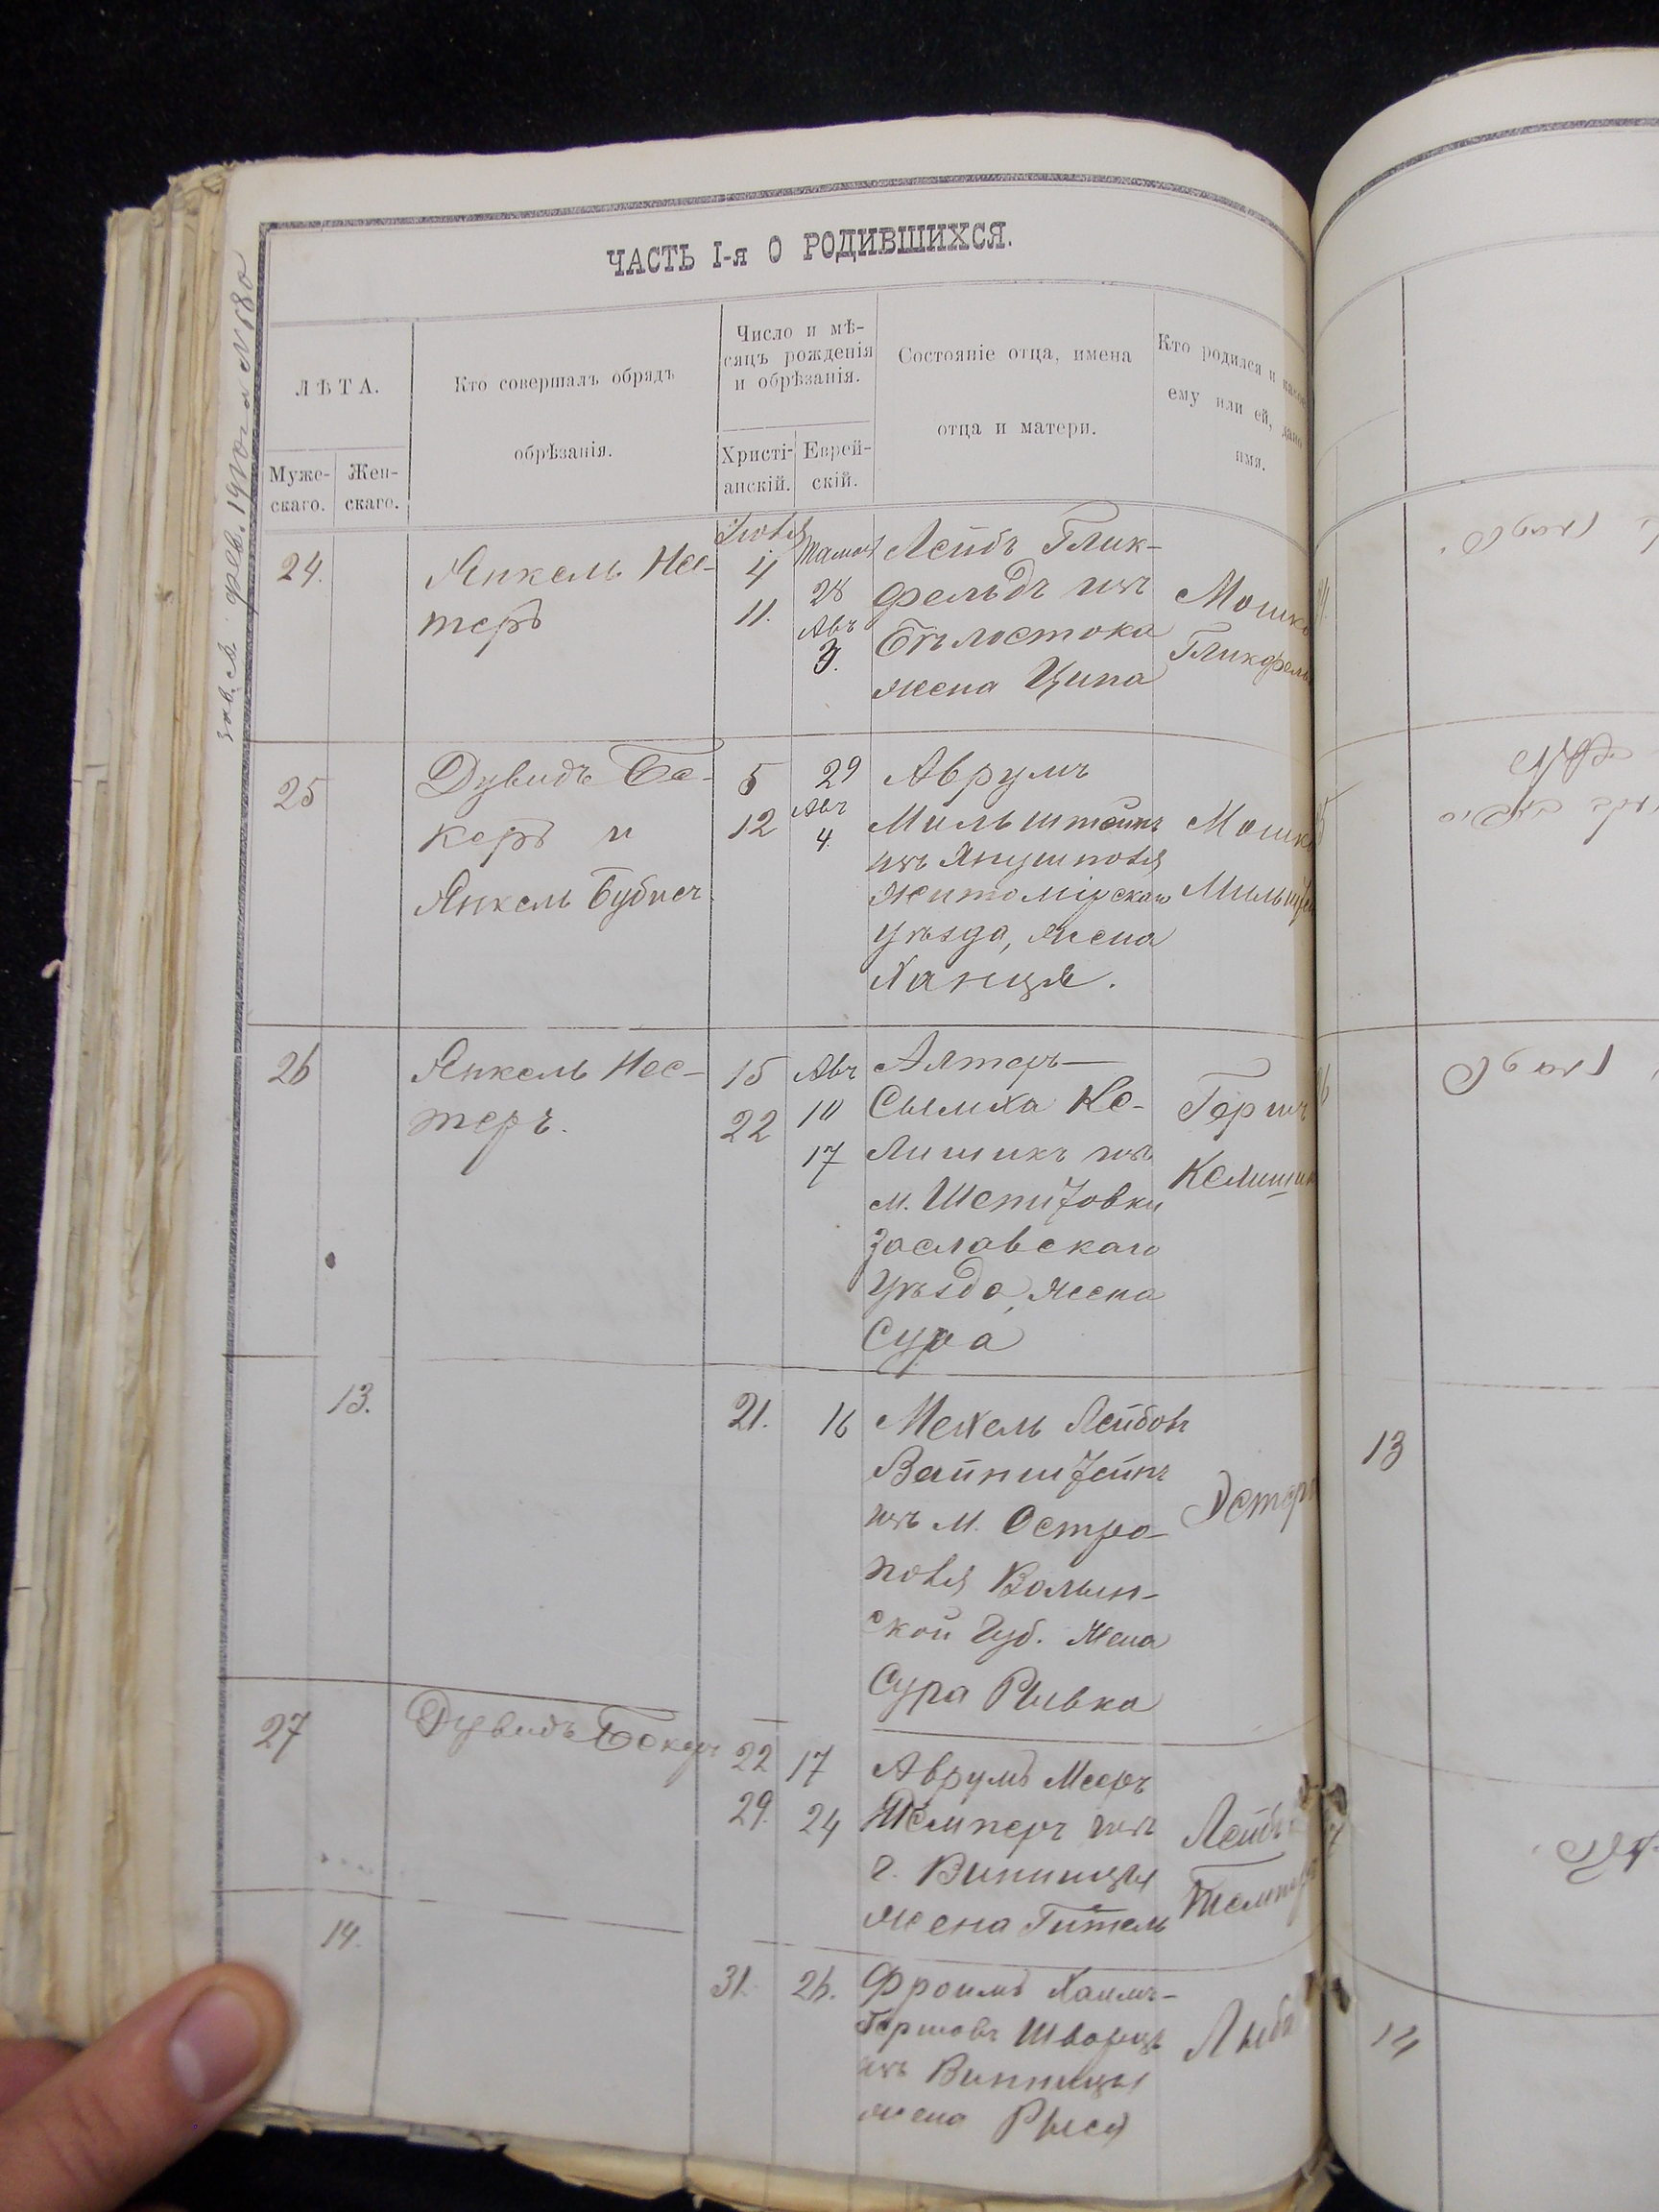 ЧАСТЬ I-я О РОДИВШИХСЯ.
ЛѢТА.
Муже-
скаго.
Жен-
скаго.
Кто совершалъ обрядъ
обрѣзанія.
Число и мѣ-
сяцъ рожденія
и обрѣзанія.
Христі-
анскій.
Еврей-
скій.
Состояніе отца, имена
отца и матери.
Кто родился и какое
ему или ей, дано
имя.
24.
Янкель Нес-
теръ
Іюля
4
11.
Тамуз
28
Авъ
Лейбъ Глик-
фельдъ изъ
Бѣлостока
жена Ципа
Мошко
Гликфель
25
Дувидъ Бе-
керъ и
Янкель Бубнеч
5
12
29
Авъ
4
Аврумъ
Мильштейнъ
изъ Янушполя
Житомірскаго
уѣзда, жена
Ханця.
Мошко
26
Янкель Нес-
теръ.
15
22
Авъ
10
17
Алтеръ-
Сымха Ке-
лишикъ изъ
м. Шепетовки
Заславскаго
Уѣзда, жена
Сура
Гершъ
Келишик
13.
21.
16
Мехель Лейбовъ
Вайнштейнъ
изъ м. Остро-
поля Волын-
ской Губ. жена
Сура Рывка
Эстера
13
27
Дувидъ Бекеръ
22
29.
17
24
Аврумъ Мееръ
Темперъ изъ
г. Винницы
жена Гитель
Лейбъ
Темперъ
14.
31.
26.
Фроимъ Хаимъ-
Гершовъ Шварцъ
изъ Винницы
жена Рыся
Лыба
14